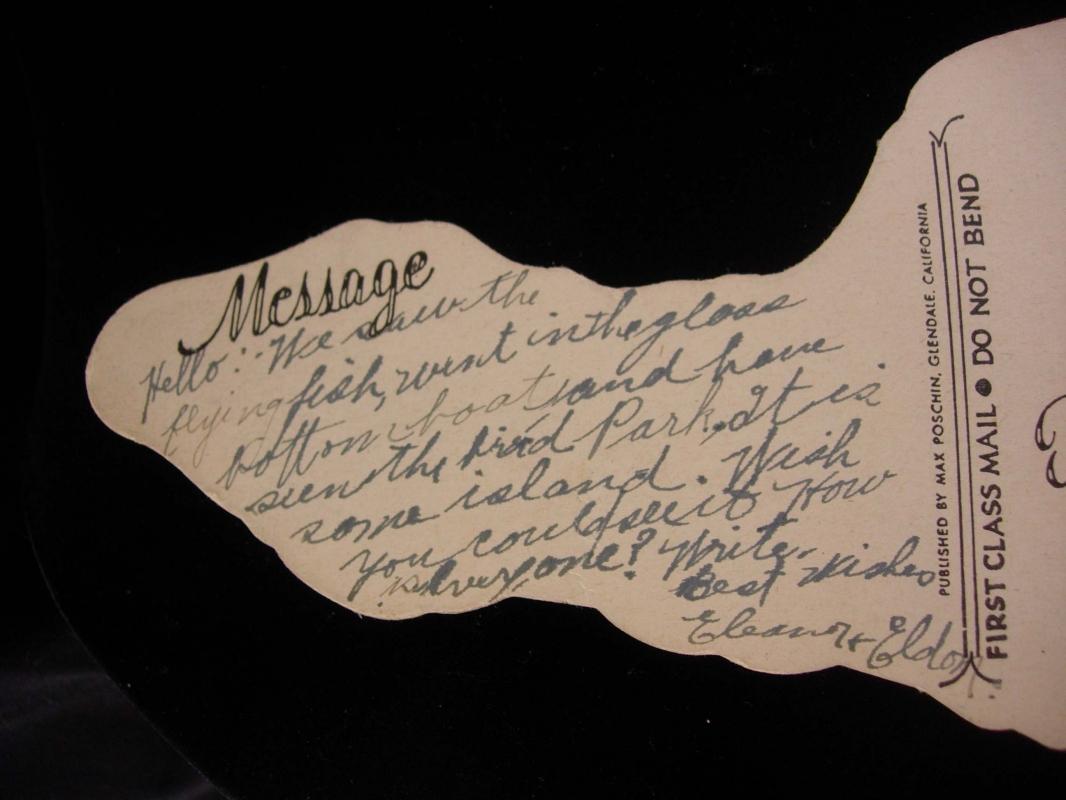 Message
Hello: We saw the
flying fish, went in the glass
bottom boat and have
seen the bird Park. It is
some island. Wish
you could see it How
is everyone? Write.
Best Wishes
Eleanor + Eldon
PUBLISHED BY MAX POSCHIN, GLENDALE, CALIFORNIA
FIRST CLASS MAIL ● DO NOT BEND